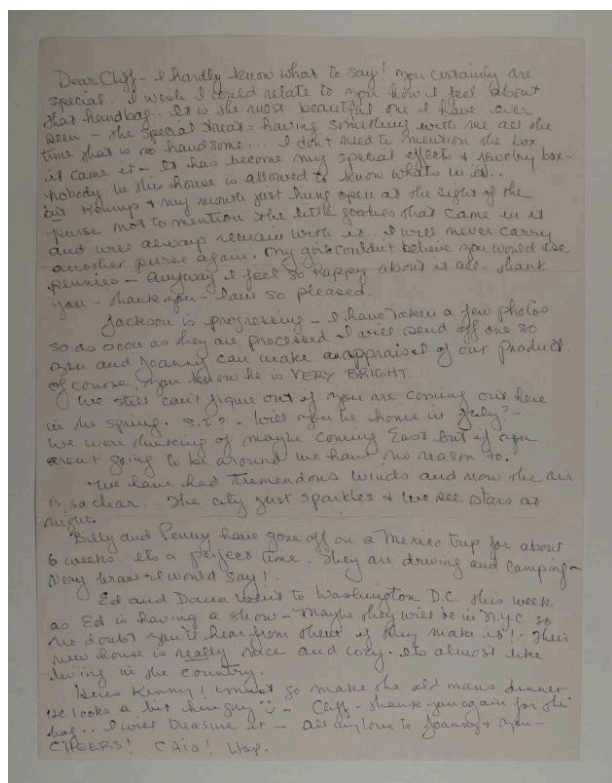 Dear Cliff - I hardly know what to say! You certainly are
special. I wish I could relate to you how I feel about
that handbag.. It is the most beautiful one I have ever
seen - the special treat = having something with me all the
time that is so handsome... I don't need to mention the box
it came it - It has become my special effects & jewelry box -
nobody in this house is allowed to know whats in it..
& my mouth just hung open at the sight of the
purse not to mention the little goodies that came in it
and will always remain with it. I will never carry
another purse again. My girls couldn't believe you would use
pennies - Anyway I feel so happy about it all. thank
you - thank you - I am so pleased.
Jackson is progressing - I have taken a few photos
so as soon as they are processed I will send off one so
you and Joanny can make an appraisal of our product
of course, you know he is VERY BRIGHT.
We still can't figure out if you are coming out here
in the spring. Will you be home in July? -
We were thinking of maybe coming East but if you
aren't going to be around we have no reason to.
We have had tremendous winds and now the air
is so clear.. The city just sparkles & we see stars at
night.
Billy and Penny have gone off on a Mexico trip for about
6 weeks. its a perfect time. They are driving and camping -
Very brave I would say!
Ed and Dana went to Washington D.C. this week
as Ed is having a show - Maybe they will be in N.Y.C. so
no doubt you'll hear from them if they make it! - Their
new house is really nice and cozy. its almost like
living in the country.
Heres Kenny! I must go make the old mans dinner
He looks a bit hungry Cliff - thank-you again for the
bag.. I will treasure it - all my love to Joanny & you -
CHEERS! CAIO! Hap.